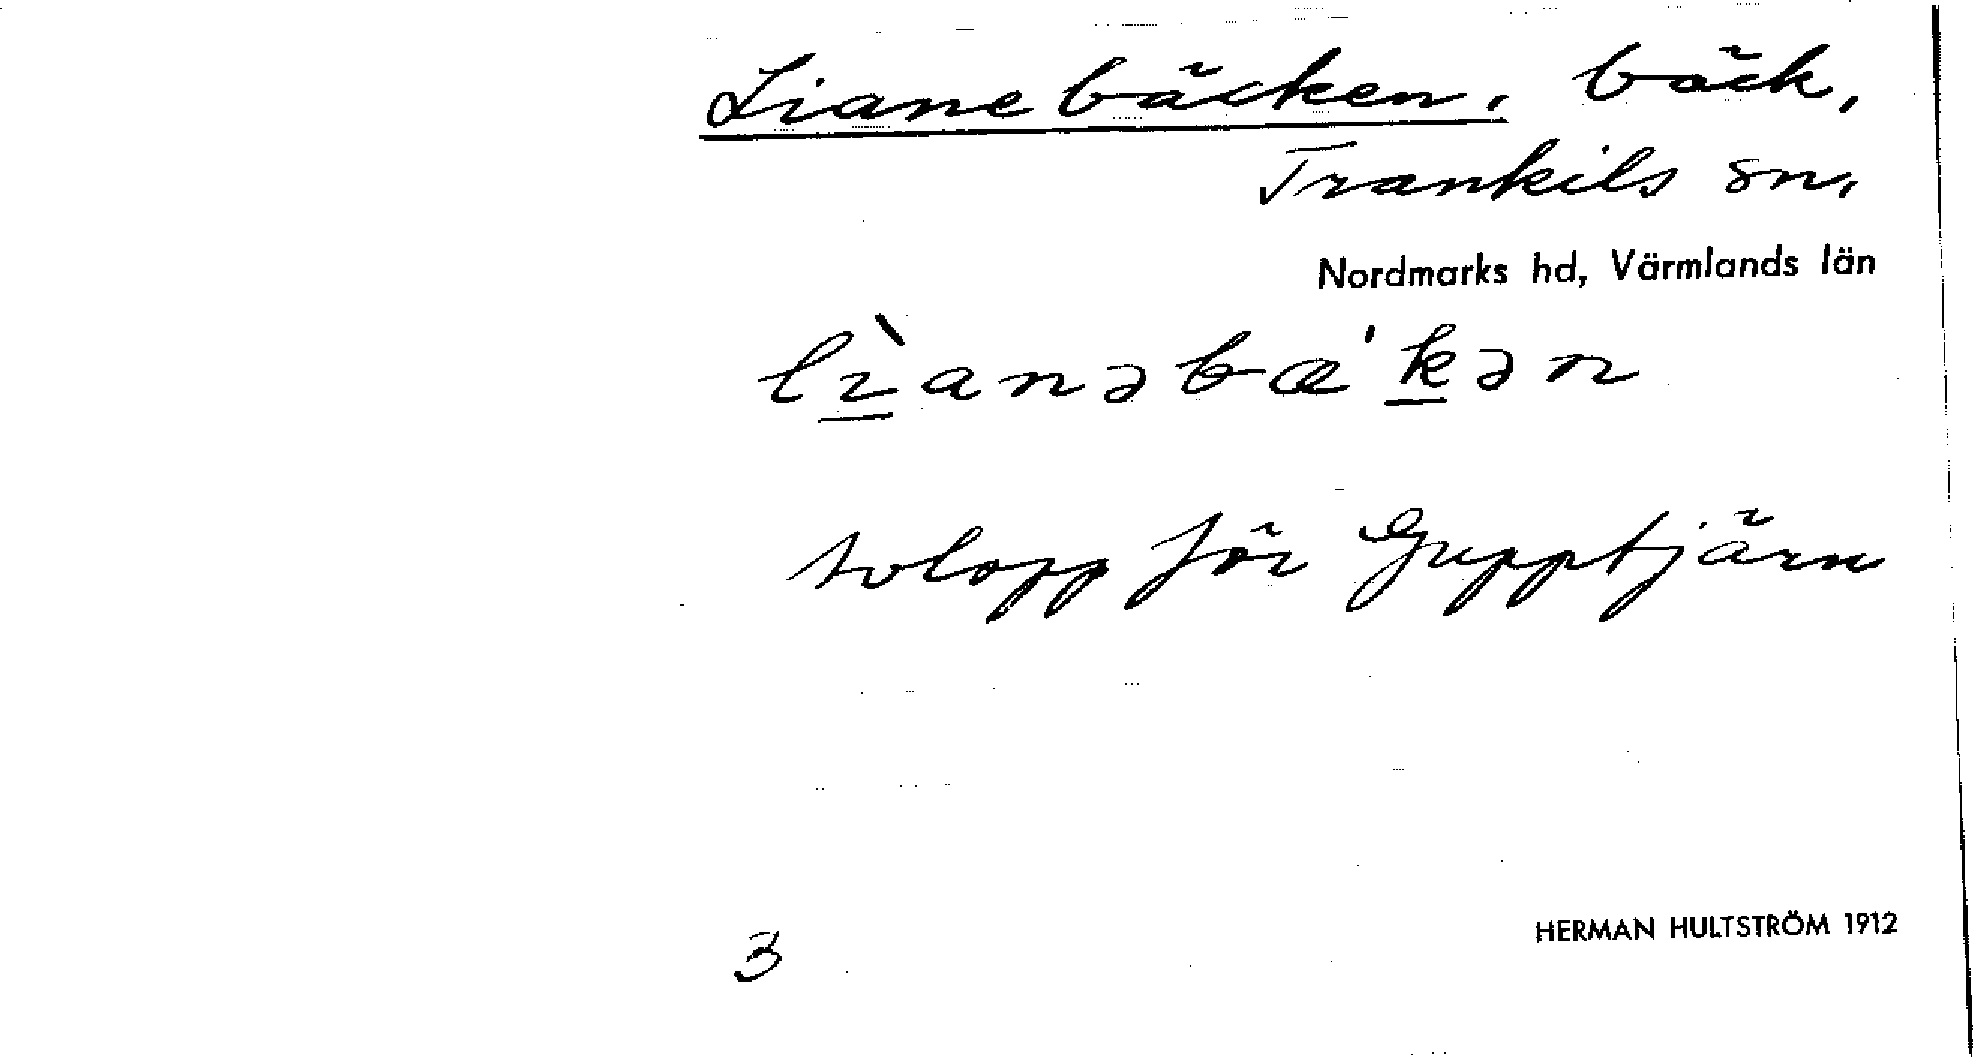 Lianebäcken, bäck,
Trankils sn,
Nordmarks hd, Värmlands län
lìanəbæ'kən
avlopp för Gupptjärn
3
HERMAN HULTSTRÖM 1912